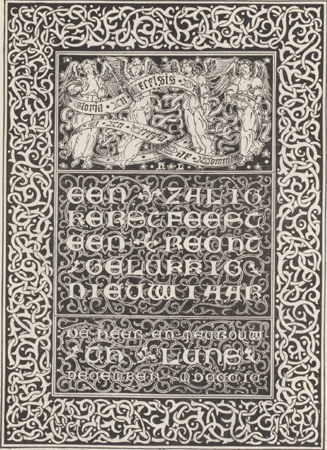 Gloria in excelsis
H L
EEN ZALIG
KERSTFEEST
EEN RECHT
GELUKKIG
NIEUWJAAR
DE HEER EN MEVROUW
TH LUNS
DECEMBER MDCCCIC